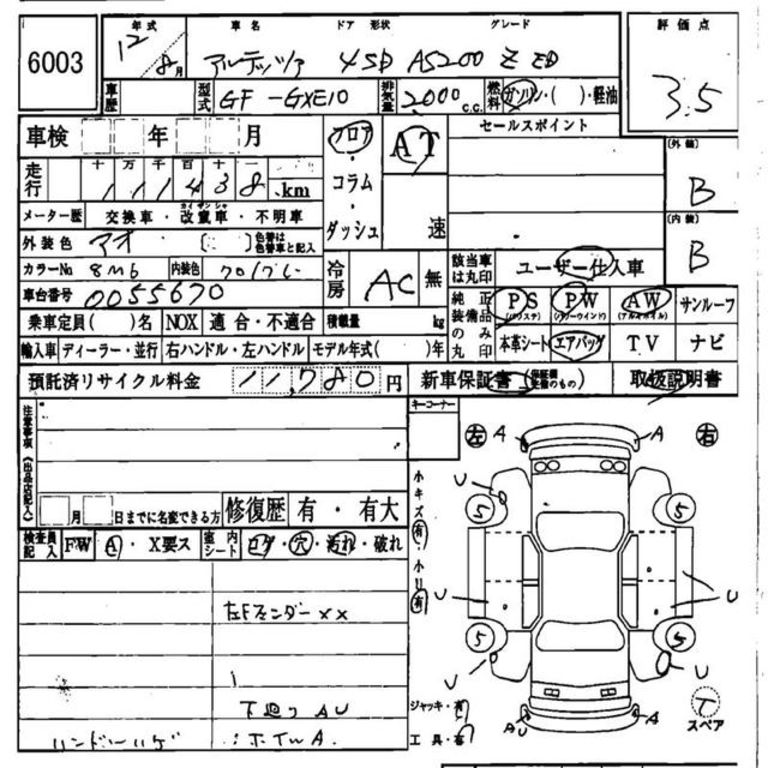 6003
年式 車名 ドア 形状 グレード 評価点
12/8月 アルテッツァ 4SD AS200 Z ED
3.5
車歴 型式 GF-GXE10 排気量 2000 c.c. 燃料 ガソリン・( )・軽油
車検 年 月 フロア・コラム・ダッシュ AT 速 セールスポイント (外装) B
走行 十万千百十一
111438 km
(内装) B
メーター歴 交換車・改竄車・不明車
カイザンシャ
外装色 アオ ( ) 色替は色替車と記入
カラーNo 8M6 内装色 クロ/グレー 冷房 AC 無
該当車は丸印 ユーザー仕入車
車台番号 0055670
純正装備品のみ丸印 PS (パワステ) PW (パワーウインド) AW (アルミホイル) サンルーフ
乗車定員( )名 NOX 適合・不適合 積載量 kg
本革シート エアバッグ TV ナビ
輸入車 ディーラー・並行 右ハンドル・左ハンドル モデル年式( )年
預託済リサイクル料金 11,780円 新車保証書 (保証機構のもの) 取扱説明書
注意事項(出品店記入) キーコーナー
月 日までに名変できる方 修復歴 有・有大
検査員記入 FW A・X要ス 室内シート コゲ・穴・汚れ・破れ
左Fフェンダーxx
下廻りAU
ハンドルハゲ ホイルA
左 A A 右
小キズ 有 U U
5 5
小U 有 U U
5 5
U U
ジャッキ・有
工具・有
AU A
T スペア